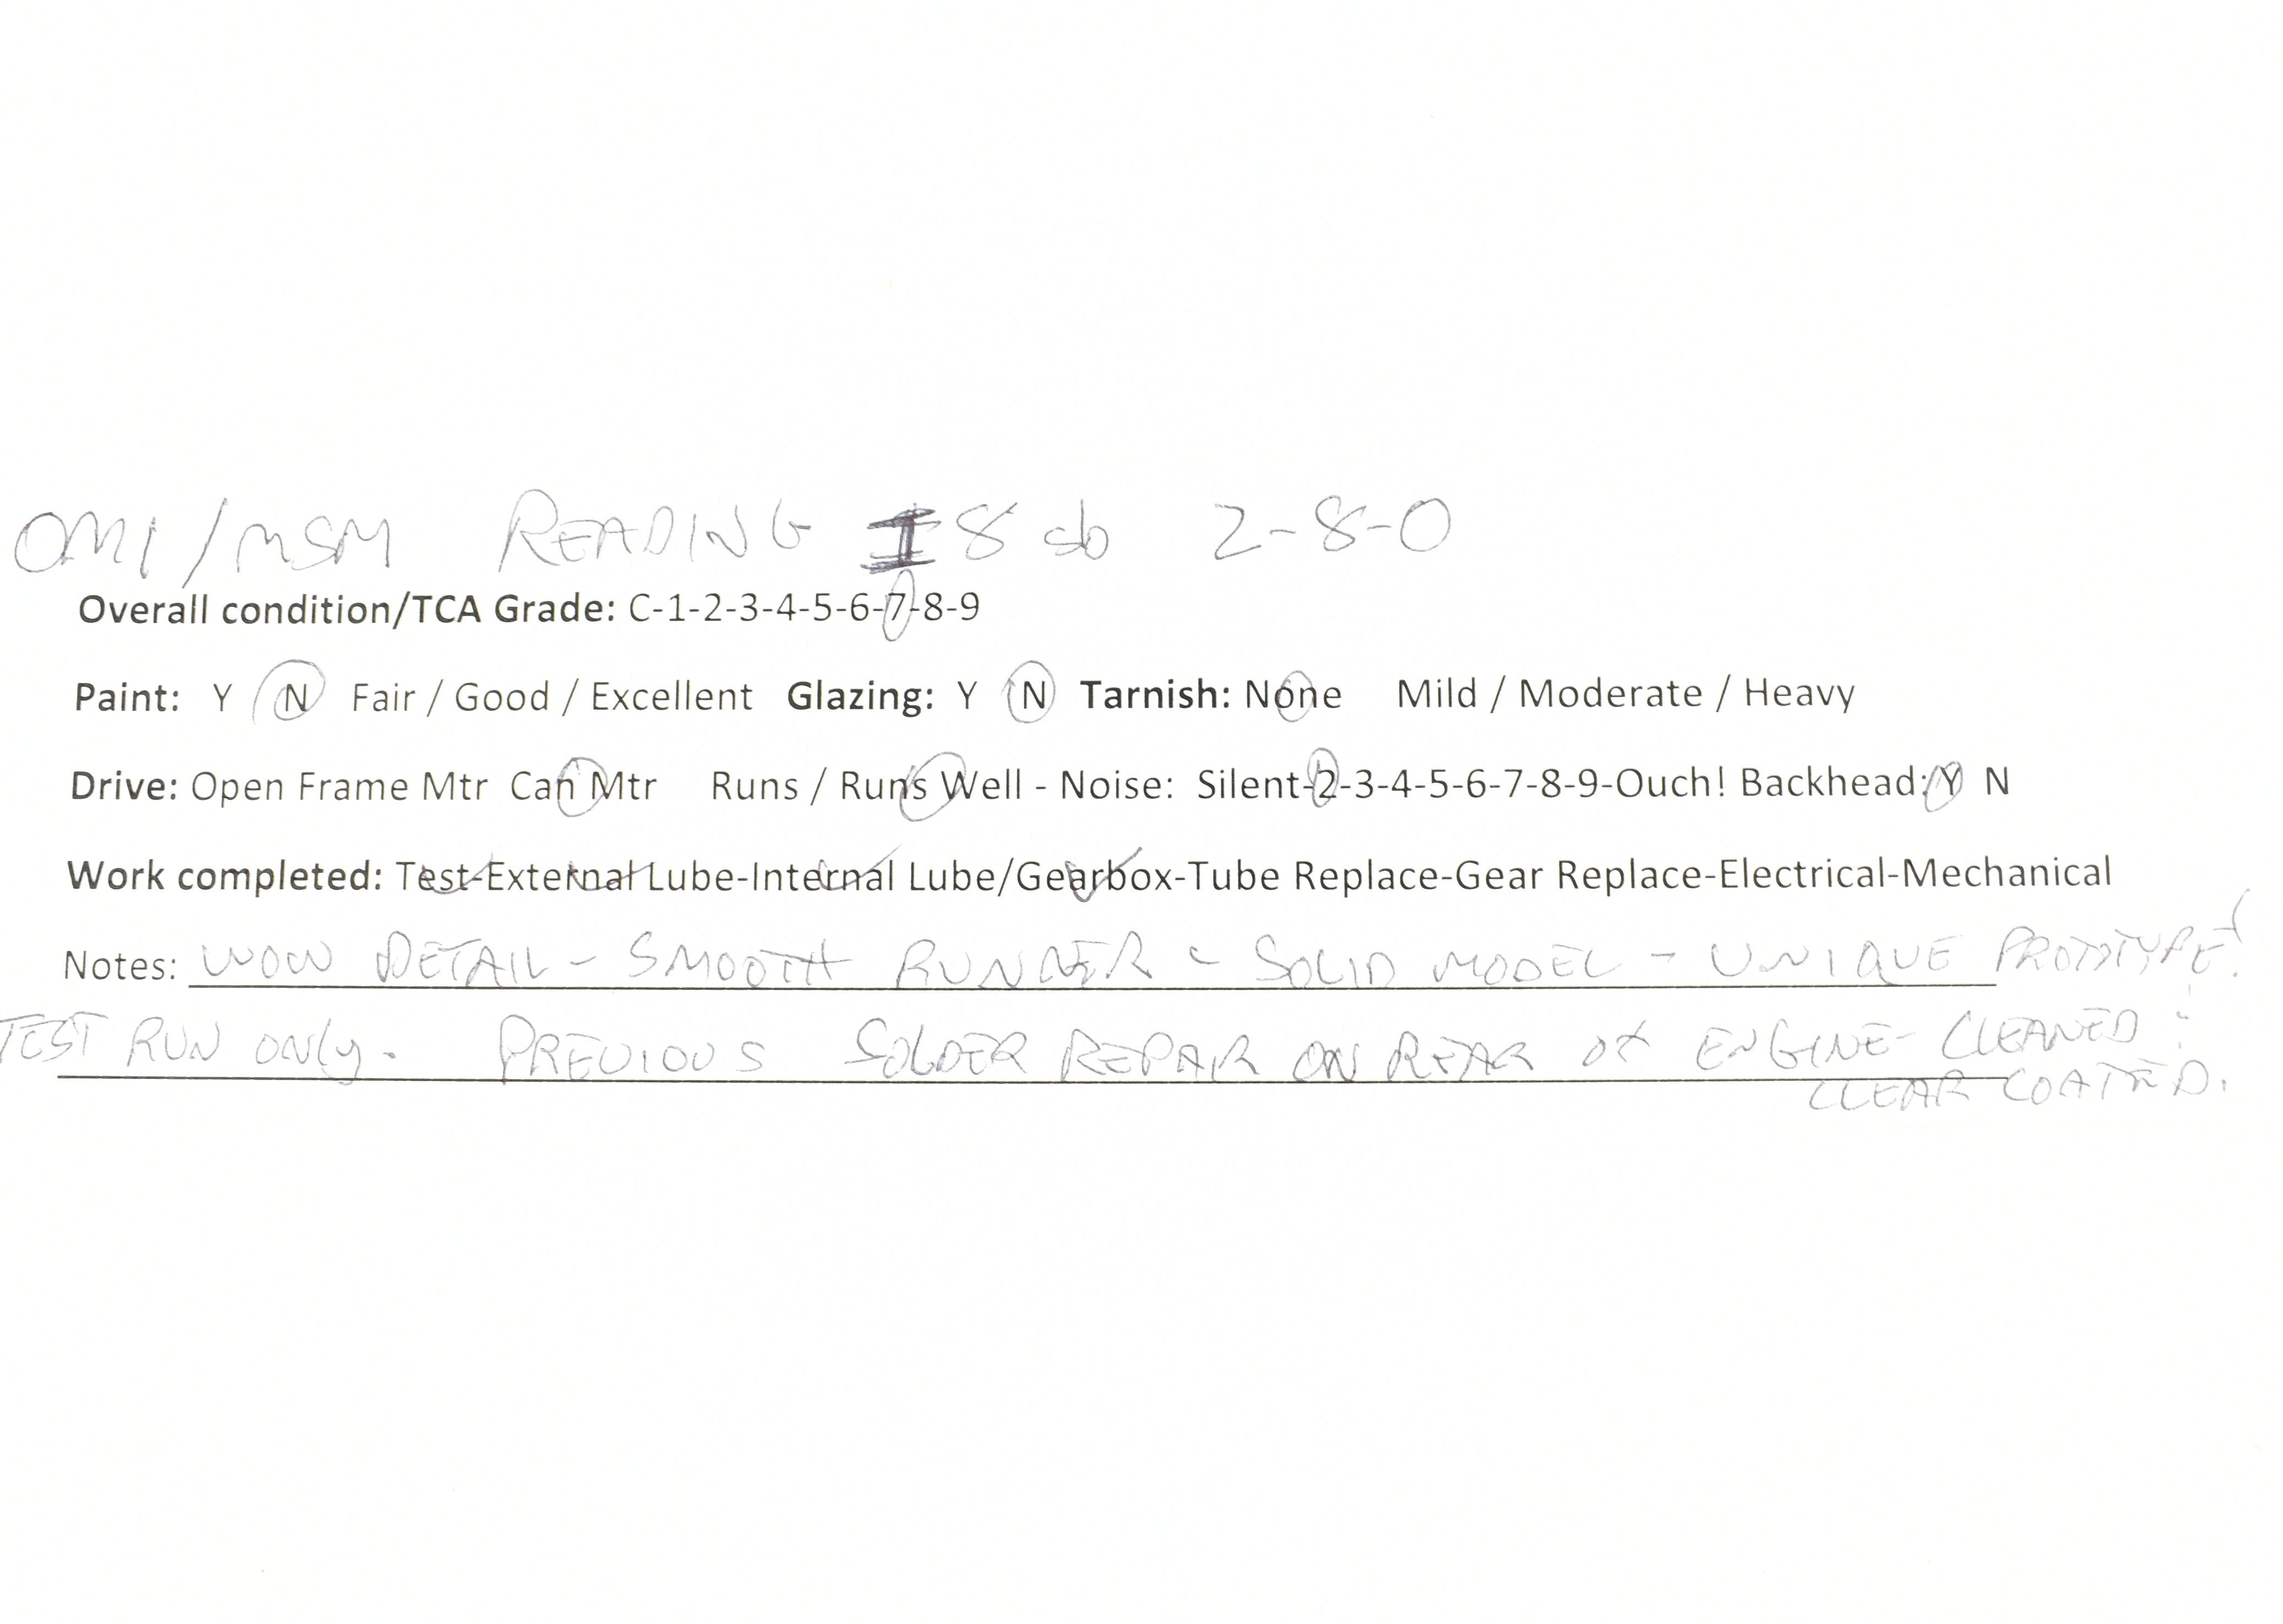 OMI/MSM READING I8sb 2-8-0
Overall condition/TCA Grade: C-1-2-3-4-5-6-7-8-9
Paint: Y N Fair / Good / Excellent Glazing: Y N Tarnish: None Mild / Moderate / Heavy
Drive: Open Frame Mtr Can Mtr Runs / Runs Well - Noise: Silent-2-3-4-5-6-7-8-9-Ouch! Backhead: Y N
Work completed: Test-External Lube-Internal Lube/Gearbox-Tube Replace-Gear Replace-Electrical-Mechanical
Notes: WOW DETAIL - SMOOTH RUNNER - SOLID MODEL - UNIQUE PROTOTYPE!
TEST RUN ONLY. PREVIOUS SOLDER REPAIR ON REAR OF ENGINE - CLEANED &
CLEAR COATED.